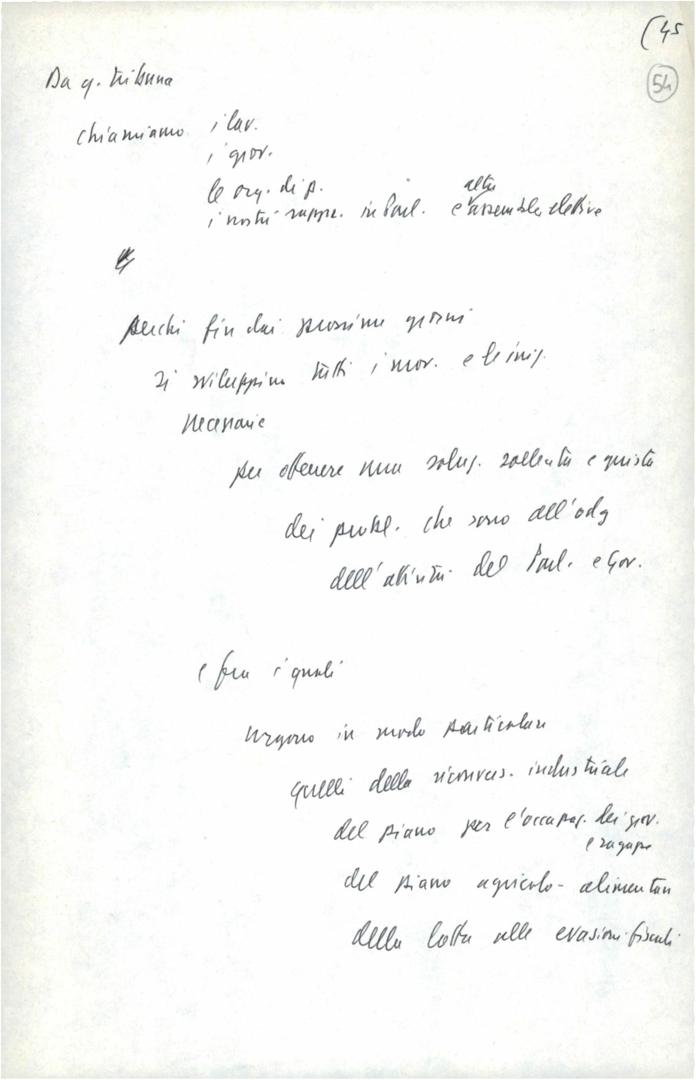 (45
54
Da q. tribuna
chiamiamo i lav.
i giov.
le org. di p.
i nostri rappr. in Parl. e altre assemblee elettive
perché fin dai prossimi giorni
si sviluppino tutti i mov. e le iniz.
necessarie
per ottenere una soluz. sollecita e giusta
dei probl. che sono all'odg
dell'attività del Parl. e Gov.
e fra i quali
urgono in modo particolare
quelli della riconvers. industriale
del piano per l'occupaz. dei giov.
e ragazze
del piano agricolo-alimentare
della lotta alle evasioni fiscali